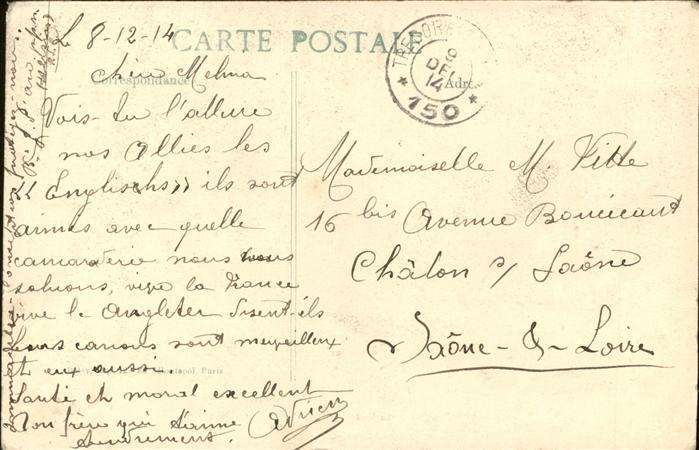 8-12-14
CARTE POSTALE
TRESOR
9
DEC
14
* 150 *
Correspondance
Chère Melma
Vois-tu l'allure
nos Allies les
"Englischs" ils sont
aimés avec quelle
camaraderie nous nous
saluons, vive la France
vive le Angleter disent-ils
leurs canons sont merveilleux
et eux aussi.
Santé et moral excellent
Ton frère qui t'aime
tendrement. Adrien
Mademoiselle M. Vitte
16 bis Avenue Boucicaut
Châlon s/ Saône
Saône-&-Loire
Paris